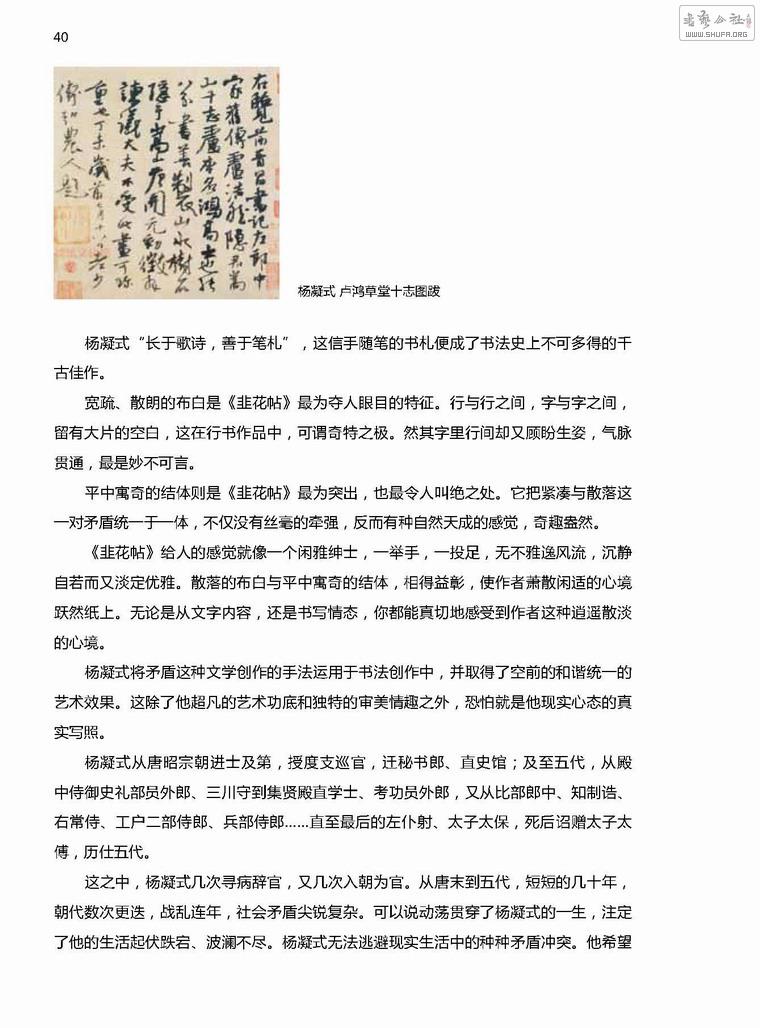 40
WWW.SHUFA.ORG
右覽前晉昌書記左郎中
家舊傳盧浩然隱居嵩
山十志盧本名鴻高士也能
八分書善製山水樹石
隱于嵩山唐開元初徵拜
諫議大夫不受此畫可珍
重也丁未歲前七月十八日老少
傅弘農人題
杨凝式 卢鸿草堂十志图跋
杨凝式“长于歌诗，善于笔札”，这信手随笔的书札便成了书法史上不可多得的千
古佳作。
宽疏、散朗的布白是《韭花帖》最为夺人眼目的特征。行与行之间，字与字之间，
留有大片的空白，这在行书作品中，可谓奇特之极。然其字里行间却又顾盼生姿，气脉
贯通，最是妙不可言。
平中寓奇的结体则是《韭花帖》最为突出，也最令人叫绝之处。它把紧凑与散落这
一对矛盾统一于一体，不仅没有丝毫的牵强，反而有种自然天成的感觉，奇趣盎然。
《韭花帖》给人的感觉就像一个闲雅绅士，一举手，一投足，无不雅逸风流，沉静
自若而又淡定优雅。散落的布白与平中寓奇的结体，相得益彰，使作者萧散闲适的心境
跃然纸上。无论是从文字内容，还是书写情态，你都能真切地感受到作者这种逍遥散淡
的心境。
杨凝式将矛盾这种文学创作的手法运用于书法创作中，并取得了空前的和谐统一的
艺术效果。这除了他超凡的艺术功底和独特的审美情趣之外，恐怕就是他现实心态的真
实写照。
杨凝式从唐昭宗朝进士及第，授度支巡官，迁秘书郎、直史馆；及至五代，从殿
中侍御史礼部员外郎、三川守到集贤殿直学士、考功员外郎，又从比部郎中、知制诰、
右常侍、工户二部侍郎、兵部侍郎……直至最后的左仆射、太子太保，死后诏赠太子太
傅，历仕五代。
这之中，杨凝式几次寻病辞官，又几次入朝为官。从唐末到五代，短短的几十年，
朝代数次更迭，战乱连年，社会矛盾尖锐复杂。可以说动荡贯穿了杨凝式的一生，注定
了他的生活起伏跌宕、波澜不尽。杨凝式无法逃避现实生活中的种种矛盾冲突。他希望